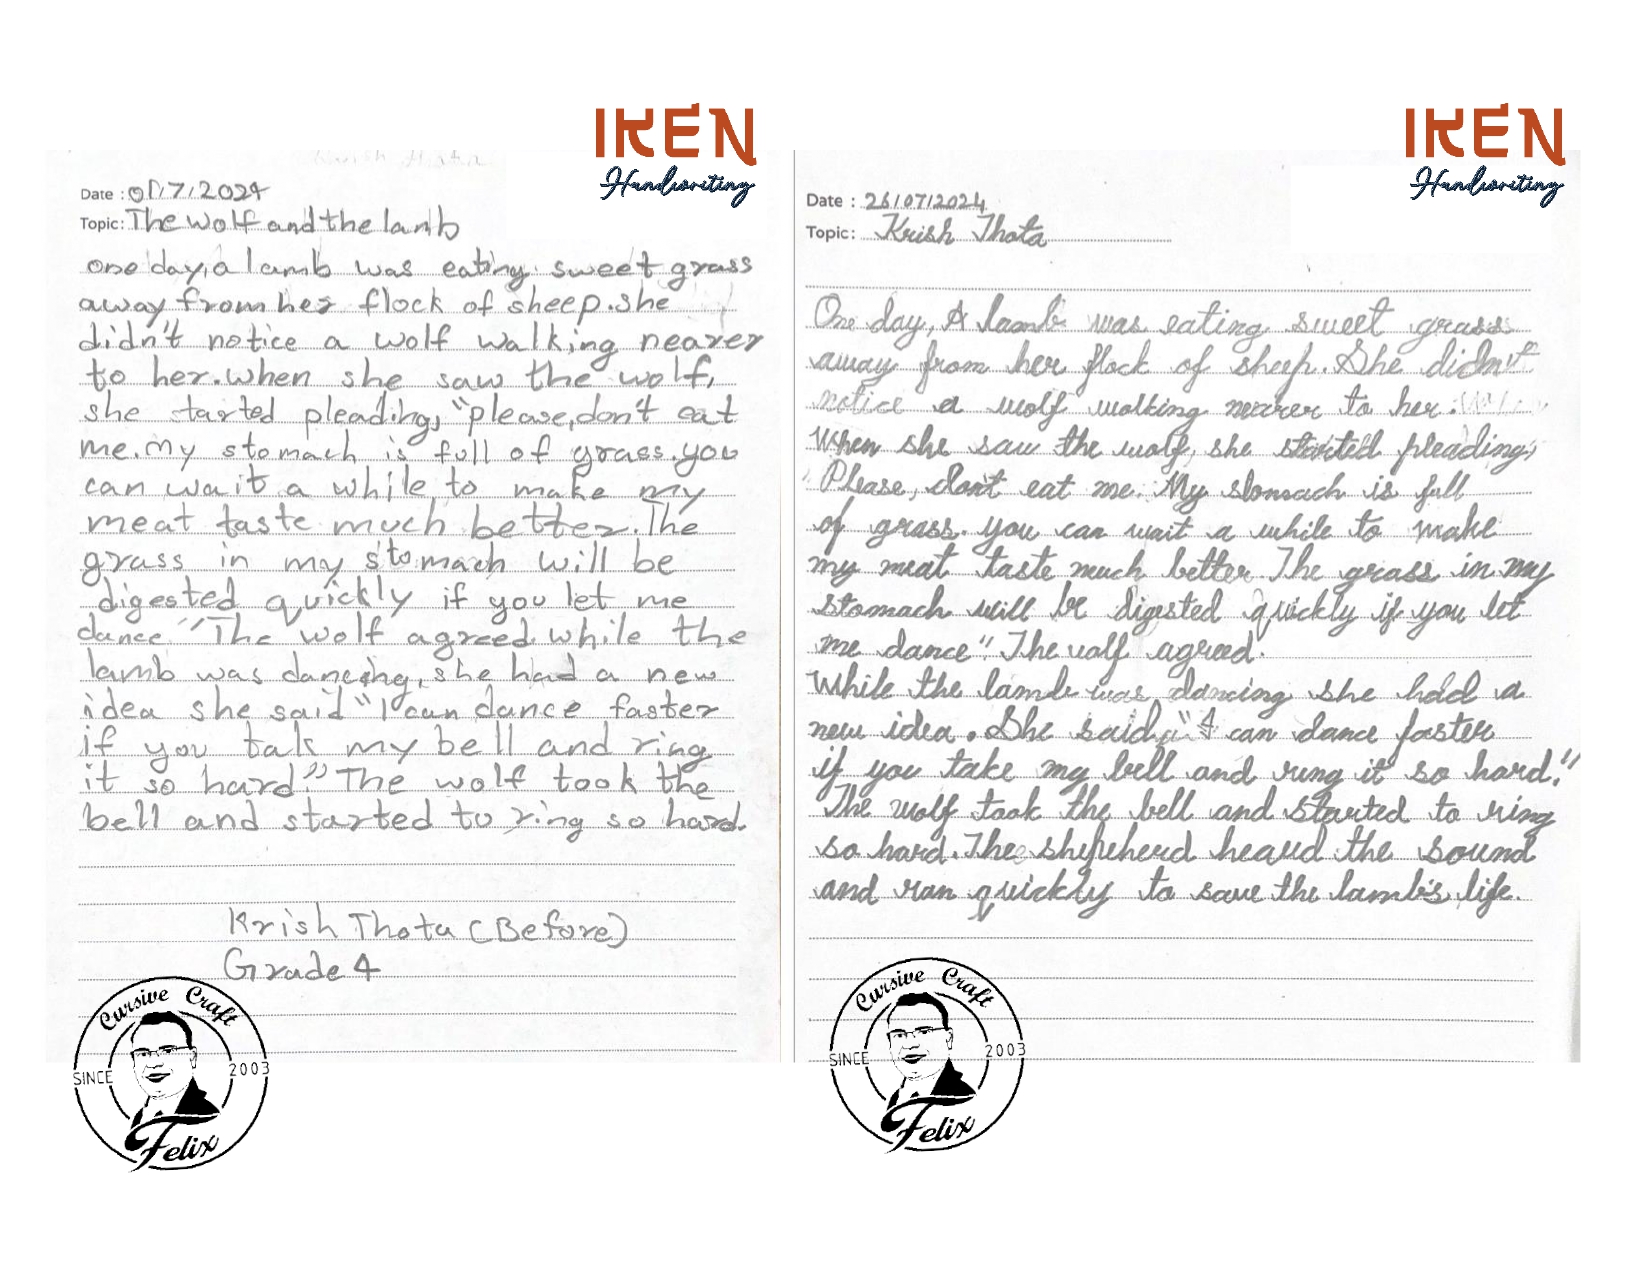 IKEN
Handwriting
Krish Thota
Date : 01/7/2024
Topic: The wolf and the lamb
one day, a lamb was eating sweet grass
away from her flock of sheep. she
didn't notice a wolf walking nearer
to her. when she saw the wolf,
she tarted pleading, "please, don't eat
me. my stomach is full of grass. you
can wait a while to make my
meat taste much better. The
grass in my stomach will be
digested quickly if you let me
dance." The wolf agreed. while the
lamb was dancing, she had a new
idea she said "I can dance faster
if you tak my bell and ring
it so hard." The wolf took the
bell and started to ring so hard.
Krish Thota (Before)
Grade 4
Cursive Craft
SINCE 2003
Felix
IKEN
Handwriting
Date : 26/07/2024
Topic: Krish Thota
One day, A lamb was eating sweet grass
away from her flock of sheep. She didn't
notice a wolf walking nearer to her.
When she saw the wolf, she started pleading,
"Please, dont eat me. My stomach is full
of grass. you can wait a while to make
my meat taste much better. The grass in my
stomach will be digested quickly if you let
me dance". The wolf agreed.
While the lamb was dancing she had a
new idea. She said, "I can dance faster
if you take my bell and ring it so hard."
The wolf took the bell and started to ring
so hard. The shepeherd heard the sound
and ran quickly to save the lamb's life.
Cursive Craft
SINCE 2003
Felix